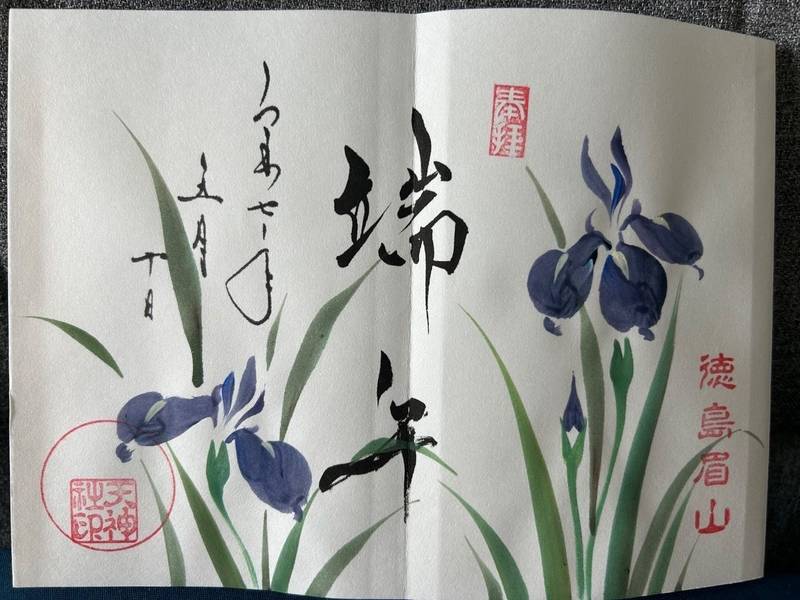 奉拝
徳島眉山
端午
令和七年
五月
十日
天神
社印